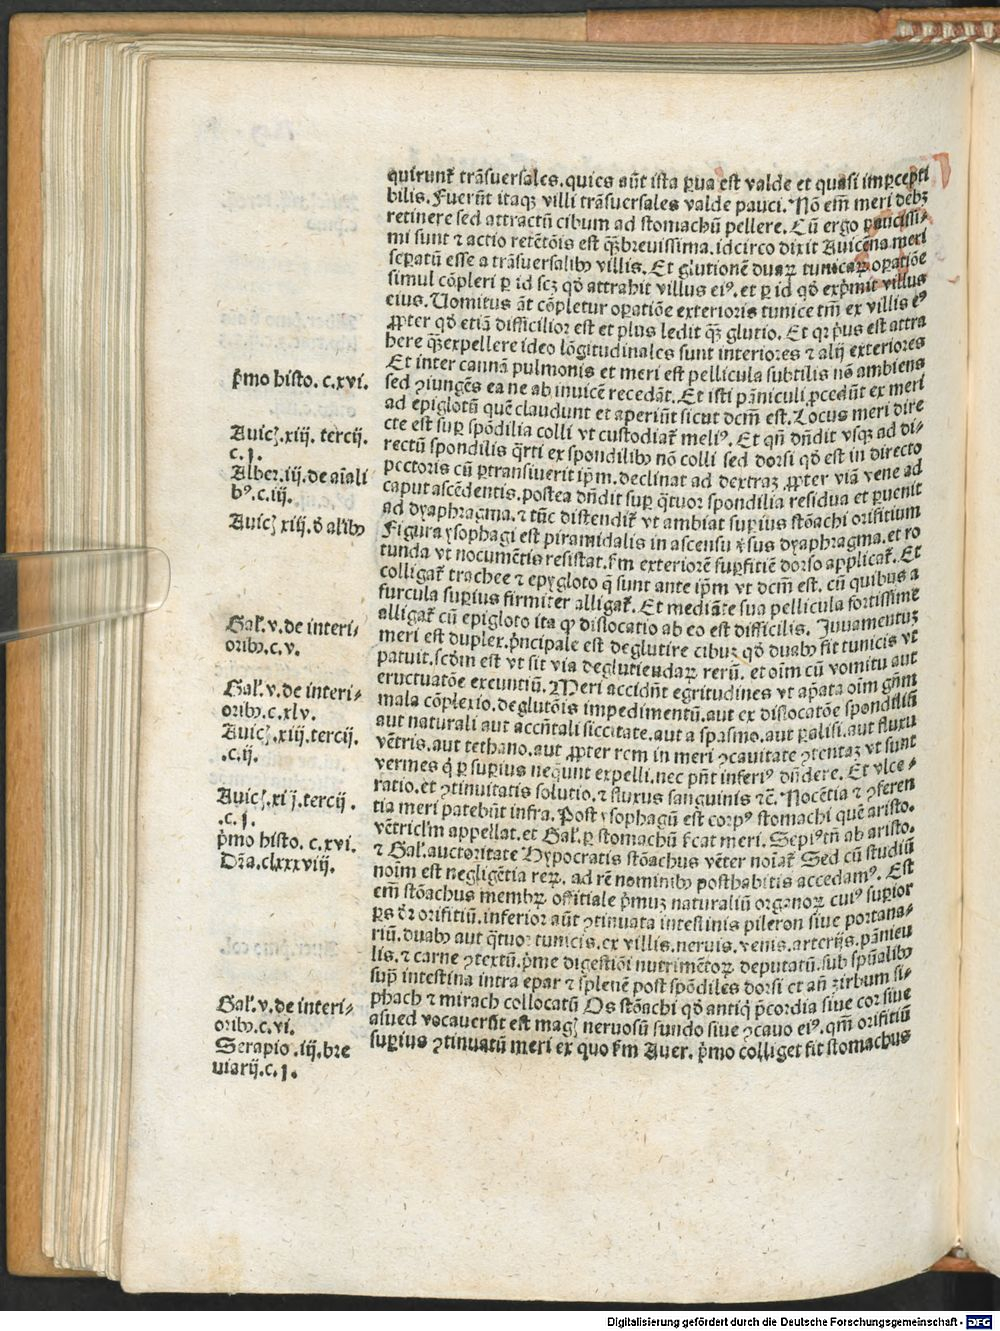 quirunt᷑ trãsuersales.quies aũt ista ꝑua est valde et quasi imꝑcepti
bilis.Fuerũt itaqꝫ villi trãsuersales valde pauci.Nõ em̃ meri debꝫ
retinere sed attractũ cibum ad stomachũ pellere. Cũ ergo paucissi-
mi sunt ⁊ actio retẽtõis est qꝫbreuissima.idcirco dixit Auicẽna meri
seꝑatũ esse a trãsuersalibꝰ villis. Et glutionẽ duaꝝ tunicaꝝ oꝑatiõe
simul cõpleri ꝑ id scꝫ qd̓ attrahit villus eiꝰ.et ꝑ id qd̓ exp̃mit villus
eius.Uomitus ãt cõpletur oꝑatiõe exterioris tunice tm̃ ex villis eꝰ
ꝓpter qd̓ etiã difficilior est et plus ledit qꝫ glutio. Et qꝛ p̃us est attra
here qꝫexpellere ideo lõgitudinales sunt interiores ⁊ alij exteriores
Et inter cannã pulmonis et meri est pellicula subtilis nõ ambiens
sed ꝯiungẽs ea ne ab inuicẽ recedãt.Et isti pãniculi ꝓcedũt ex meri
ad epiglotũ quẽ claudunt et aperiũt sicut dcm̃ est.Locus meri dire
cte est suꝑ spõdilia colli vt custodiat᷑ meliꝰ. Et qñ dñdit vsqꝫ ad di-
rectũ spondilis q̃rti ex spondilibꝰ nõ colli sed dorsi qd̓ est in directo
pectoris cũ ꝑtransiuerit ip̃m.declinat ad dextraꝫ ꝓpter viã vene ad
caput ascẽdentis.postea dñdit suꝑ q̃tuor spondilia residua et ꝑuenit
ad dyaphragma.⁊ tũc distendit᷑ vt ambiat suꝑius stõachi orificium
Figura ysophagi est piramidalis in ascensu ꝟsus dyaphragma.et ro
tunda vt nocumẽtis resistat.ẜm exteriorẽ suꝑficiẽ dorso applicat᷑. Et
colligat᷑ trachee ⁊ epygloto q̃ sunt ante ip̃m vt dcm̃ est. cũ quibus a
furcula suꝑius firmiter alligat᷑. Et mediãte sua pellicula fortissime
alligat᷑ cũ epigloto ita ꝙ dislocatio ab eo est difficilis. Juuamentuꝫ
meri est duplex.p̃ncipale est deglutire cibuꝫ qd̓ duabꝰ fit tunicis vt
patuit.scd̓m est vt sit via deglutiendaꝝ rerũ. et oim̃ cũ vomitu aut
eructuatõe exeuntiũ.Meri accidũt egritudines vt aꝑata oim̃ gñm
mala cõplexio.deglutõis impedimentũ.aut ex dislocatõe spondiliũ
aut naturali aut accñtali siccitate.aut a spasmo.aut ꝑalisi.aut fluxu
vẽtris.aut tethano.aut ꝓpter rem in meri ꝯcauitate ꝯtentaꝫ vt sunt
vermes q̃ ꝑ suꝑius neq̃unt expelli.nec pñt inferiꝰ dñdere. Et vlce-
ratio.et ꝯtinuitatis solutio.⁊ fluxus sanguinis ⁊c̃. Nocẽtia ⁊ ꝯferen
tia meri patebũt infra. Post ysophagũ est corpꝰ stomachi quẽ aristo.
vẽtricl̓m appellat.et Gal̓.ꝑ stomachũ ẜcat meri. Sepiꝰtñ ab aristo.
⁊ Gal̓.auctoritate Hypocratis stõachus vẽter noĩat᷑ Sed cũ studiũ
noĩm est negligẽtia reꝝ. ad rẽ nominibꝰ posthabitis accedamꝰ. Est
em̃ stõachus membꝝ offitiale p̃muꝫ naturaliũ organoꝝ cuiꝰ suꝑior
ꝑs dr̃ orificiũ.inferior aũt ꝯtinuata intestinis pileron siue portana-
riũ.duabꝰ aut q̃tuoꝛ tunicis.ex villis.neruis.venis.arterijs.pãnicu
lis.⁊ carne ꝯtextũ.p̃me digestiõi nutrimẽtoꝝ deputatũ.sub spũalibꝰ
suꝑ intestina intra epar ⁊ splenẽ post spõdiles dorsi et añ zirbum si-
phach ⁊ mirach collocatũ Os stõachi qd̓ antiq̃ p̃cordia siue cor siue
asued vocauerũt est magꝭ neruosũ fundo siue ꝯcauo eiꝰ.qm̃ orificiũ
suꝑius ꝯtinuatũ meri ex quo ẜm Auer. p̃mo colliget fit stomachus
p̃mo histo. c.xvi.
Auicꝭ.xiij. tercij.
c.j.
Alber.iij.de aĩali
bꝰ.c.iij.
Auicꝭ xiij.d̓ alibꝰ
Gal̓.v.de interi-
oribꝰ.c.v.
Gal̓.v.de interi-
oribꝰ.c.xlv.
Auicꝭ.xiij.tercij.
.c.ij.
Auicꝭ.xij.tercij.
.c.j.
p̃mo histo. c.xvi.
Dr̃a.clxxxviij.
Gal̓.v.de interi-
oribꝰ.c.vi.
Serapio .iij.bre
uiarij.c.j.
Digitalisierung gefördert durch die Deutsche Forschungsgemeinschaft - DFG